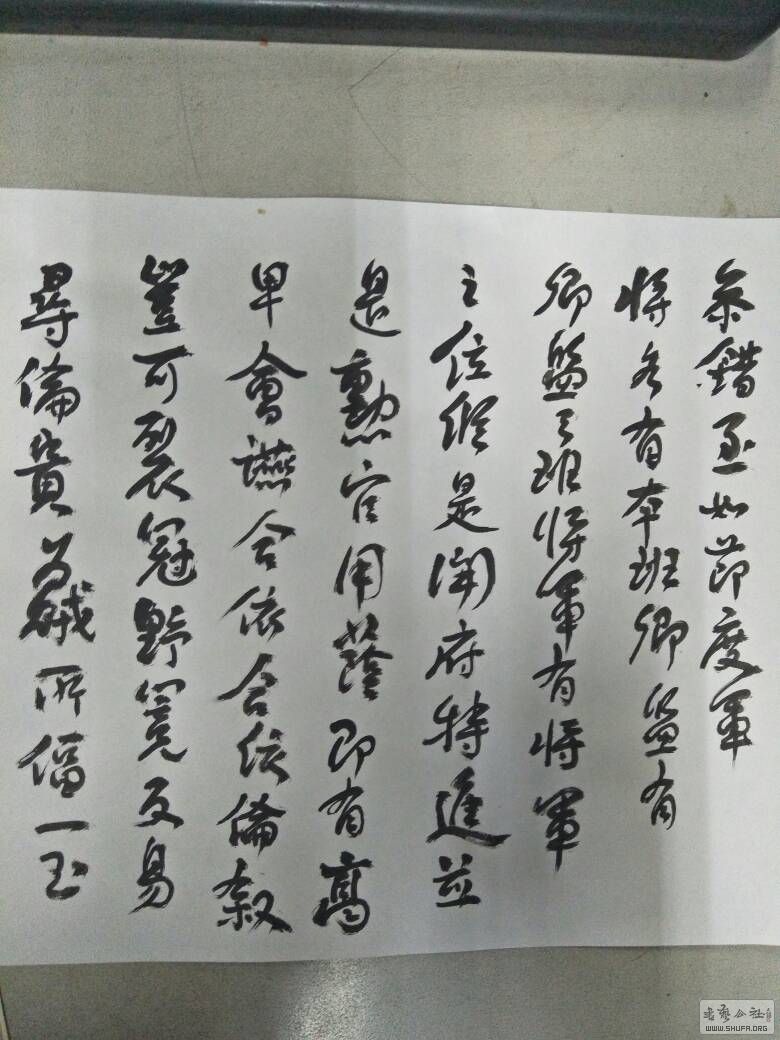 叅錯至如節度軍
將各有本班卿監有
卿監之班將軍有將軍
之位縱是開府特進並
是勳官用蔭即有高
卑會讌合依合依倫叙
豈可裂冠毀冕反易
彝倫貴為賤所偪一至
書藝公社
WWW.SHUFA.ORG